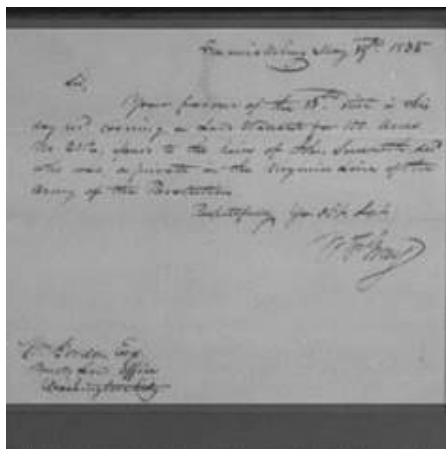 May 19th 1835
Sir,
Your favour of the 15th Inst is this
day recd covering a Land Warrant for 100 Acres
to the heirs of John decd
who was a private in the Virginia line of the
Army of the Revolution
Respectfully Yr Obt Sevt
Wm Gordon Esq
Bounty Land Office
Washington City